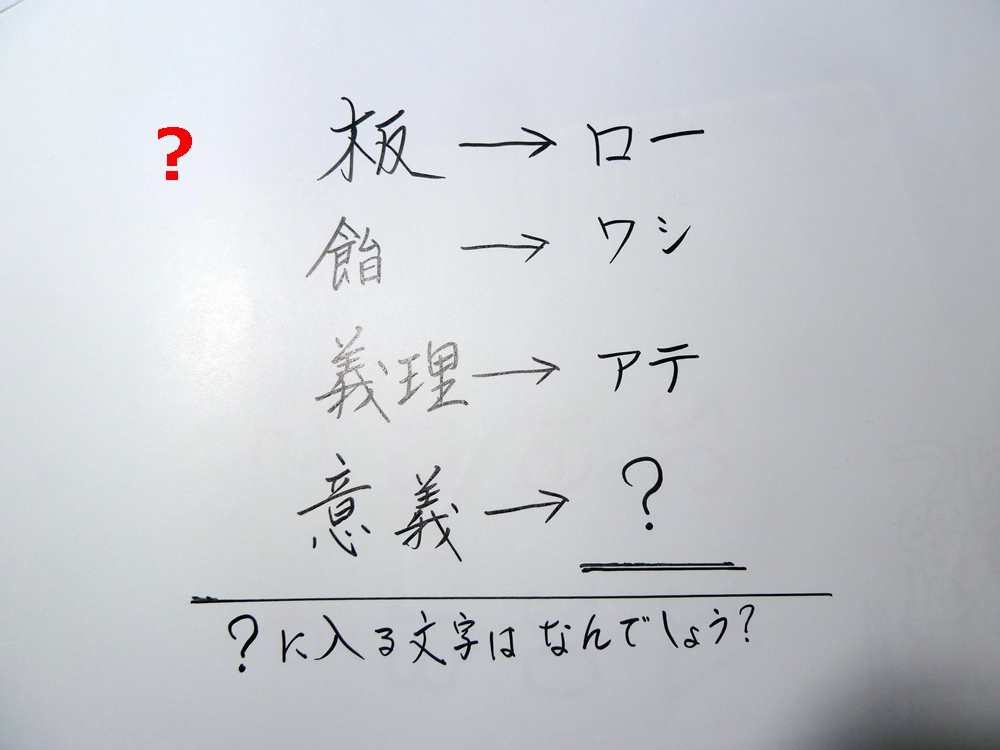 ? 板→ロー
飴→ワシ
義理→アテ
意義→?
?に入る文字はなんでしょう?